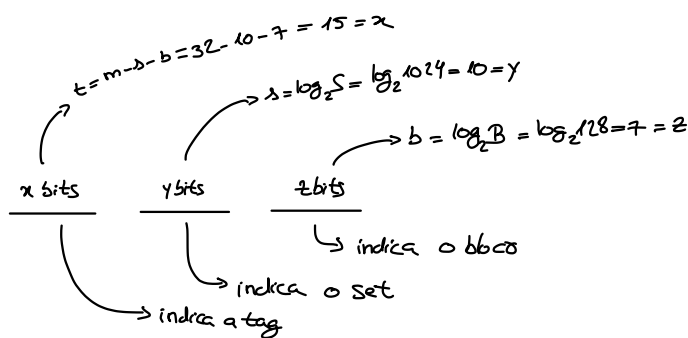 t = m-s-b = 32-10-7 = 15 = x
s = log₂S = log₂1024 = 10 = y
b = log₂B = log₂128 = 7 = z
x bits y bits z bits
indica o bloco
indica o set
indica a tag